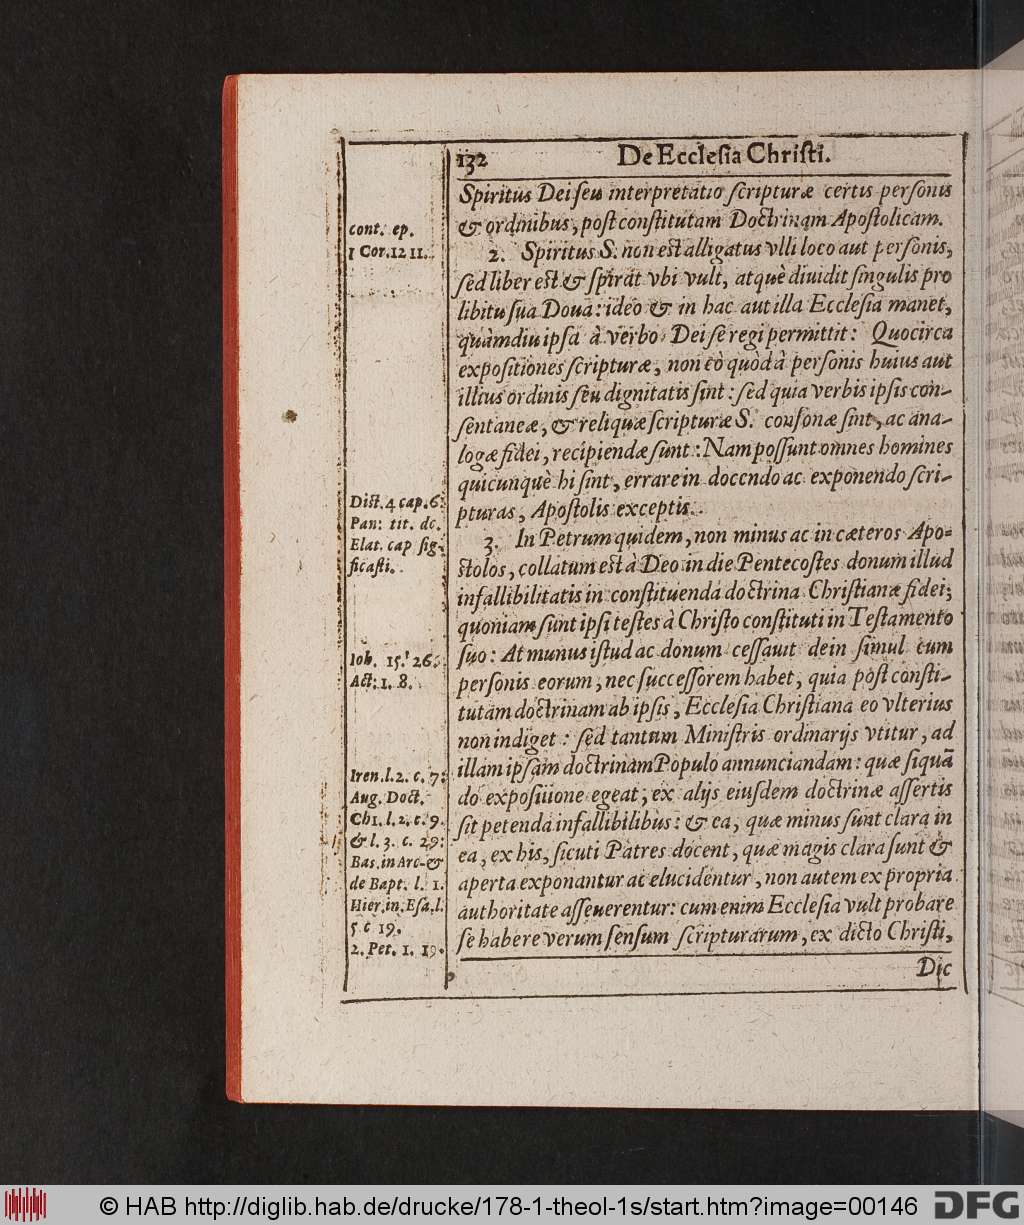 132 De Ecclesia Christi.
Spiritus Dei seu interpretatio scripturæ certis personis
& ordinibus, post constitutam Doctrinam Apostolicam.
2. Spiritus S. non est alligatus vlli loco aut personis,
sed liber est & spirat vbi vult, atquè diuidit singulis pro
libitu sua Dona: ideo & in hac aut illa Ecclesia manet,
quàmdiu ipsa à verbo Dei se regi permittit: Quocirca
expositiones scripturæ, non eò quòd à personis huius aut
illius ordinis seu dignitatis sint: sed quia verbis ipsis con-
sentaneæ, & reliquæ scripturæ S. consonæ sint, ac ana-
logæ fidei, recipiendæ sunt: Nam possunt omnes homines
quicunquè hi sint, errare in docendo ac exponendo scri-
pturas, Apostolis exceptis.
3. In Petrum quidem, non minus ac in cæteros Apo-
stolos, collatum est à Deo in die Pentecostes donum illud
infallibilitatis in constituenda doctrina Christianæ fidei;
quoniam sunt ipsi testes à Christo constituti in Testamento
suo: At munus istud ac donum cessauit dein simul cum
personis eorum, nec successorem habet, quia post consti-
tutam doctrinam ab ipsis, Ecclesia Christiana eo vlterius
non indiget: sed tantum Ministris ordinarijs vtitur, ad
illam ipsam doctrinam Populo annunciandam: quæ siquā
do exposiiione egeat, ex alijs eiusdem doctrinæ assertis
sit petenda infallibilibus: & ea, quæ minus sunt clara in
ea, ex his, sicuti Patres docent, quæ magis clara sunt &
aperta exponantur ac elucidentur, non autem ex propria
authoritate asseuerentur: cum enim Ecclesia vult probare
se habere verum sensum scripturarum, ex dicto Christi,
Dic
cont. ep.
1 Cor. 12 11.
Dist. 4 cap. 6.
Pan: tit. de.
Elat. cap sig-
ficasti.
Ioh. 15. 26.
Act: 1. 8.
Iren. l. 2. c. 7:
Aug. Doct.
Chr. l. 2. c. 9.
& l. 3. c. 29:
Bas. in Arc- &
de Bapt. l. 1.
Hier. in. Esa. l.
5 c 19.
2. Pet. 1. 19.
© HAB http://diglib.hab.de/drucke/178-1-theol-1s/start.htm?image=00146
DFG